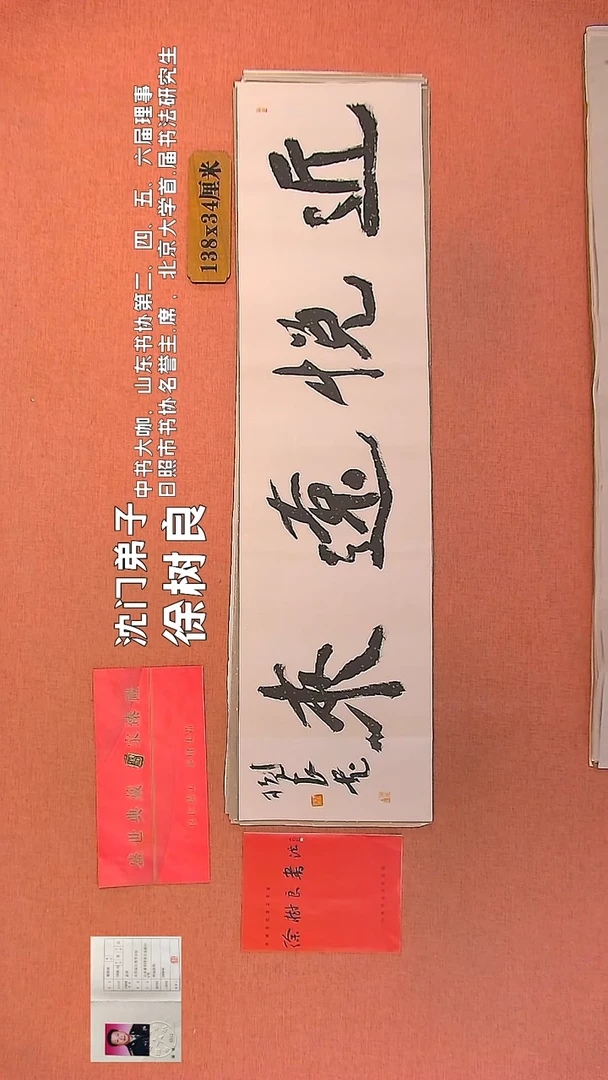 沈门弟子
徐树良
中书大咖、山东书协第二、四、五、六届理事
日照市书协名誉主席、北京大学首届书法研究生
138x34厘米
近悦遠来
树良书
盛世典藏
徐树良书法